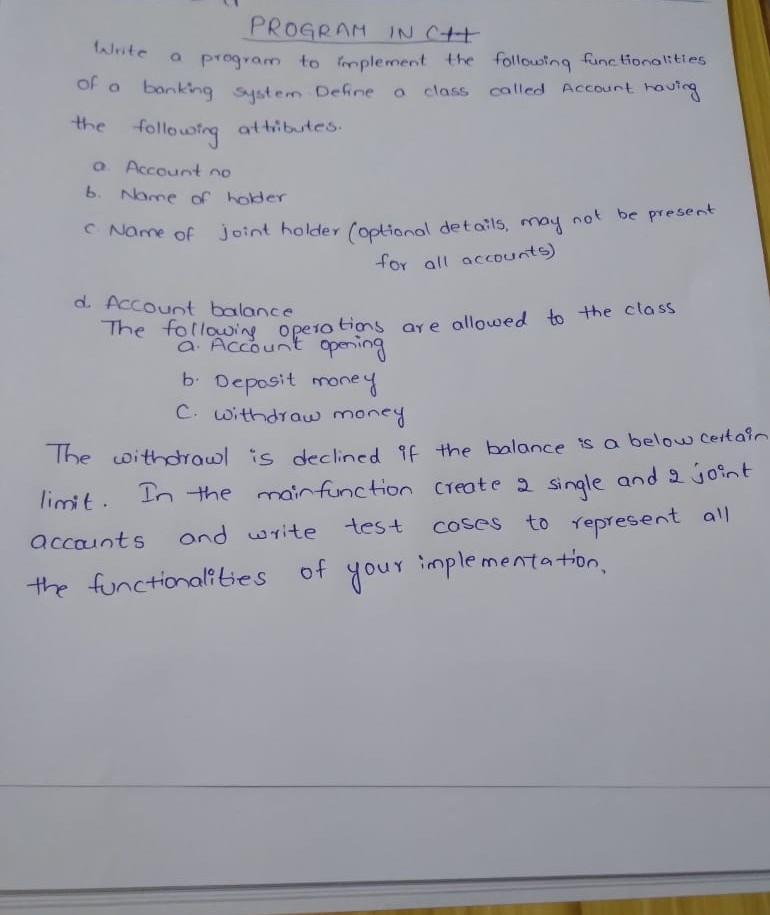 PROGRAM IN C++
Write a program to implement the following functionalities
of a banking system. Define a class called Account having
the following attributes.
a. Account no
b. Name of holder
c Name of joint holder (optional details, may not be present
for all accounts)
d. Account balance
The following operations are allowed to the class
a. Account opening
b. Deposit money
C. withdraw money
The withdrawl is declined if the balance is a below certain
limit. In the mainfunction create 2 single and 2 joint
accounts and write test cases to represent all
the functionalities of your implementation.